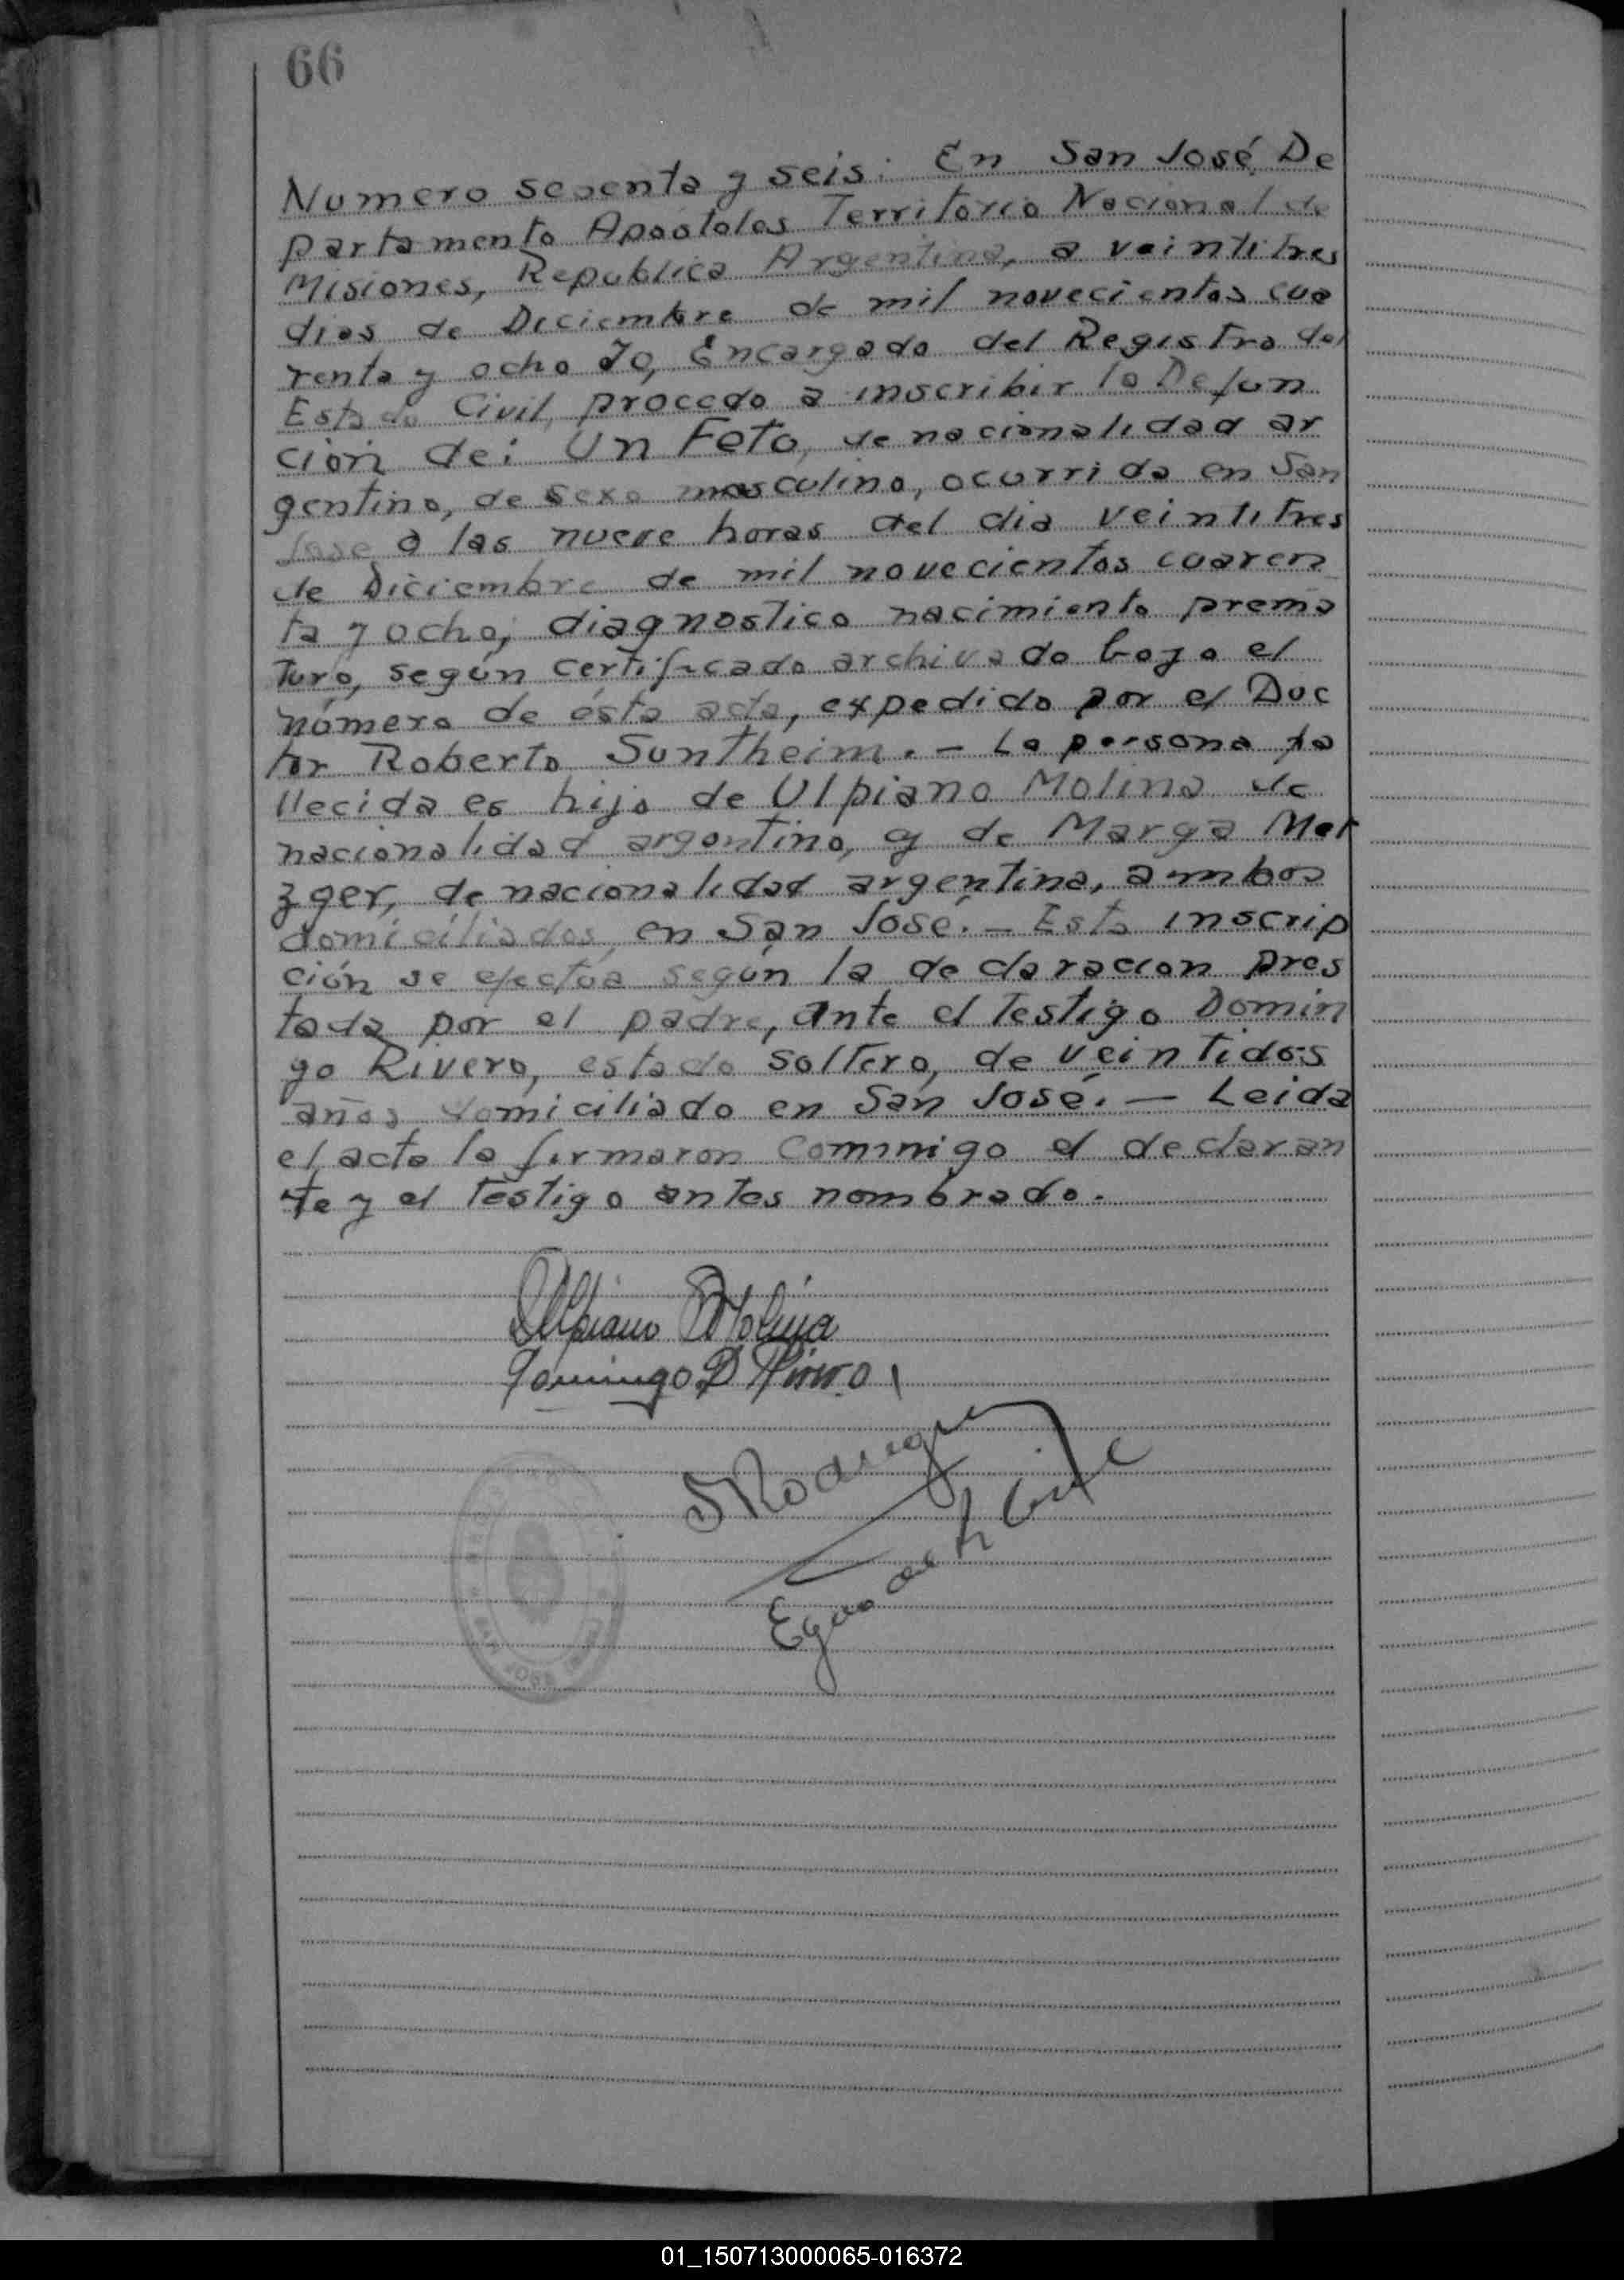 66
Numero sesenta y seis: En San José, De
partamento Apostoles Territorio Nacional de
Misiones, Republica Argentina, a veintitres
dias de Diciembre de mil novecientos cua
renta y ocho Yo, Encargado del Registro del
Estado Civil, procedo a inscribir la Defun
ción de: Un Feto, de nacionalidad ar
gentino, de sexo masculino, ocurrida en San
Jose a las nueve horas del dia veintitres
de Diciembre de mil novecientos cuaren
ta y ocho, diagnostico nacimiento prema
turo, según certificado archivado bajo el
número de ésta acta, expedido por el Doc
tor Roberto Suntheim. – La persona fa
llecida es hijo de Ulpiano Molina de
nacionalidad argentino, y de Marga Met
zger, de nacionalidad argentina, ambos
domiciliados, en San José. – Esta inscrip
ción se efectúa según la declaración pres
tada por el padre, ante el Testigo Domin
go Rivero, estado soltero, de veintidos
años domiciliado en San José. — Leida
el acta la firmaron commigo el declaran
te y el testigo antes nombrado.
Ulpiano Molina
Domingo D Rivero
SAN JOSE
01_150713000065-016372